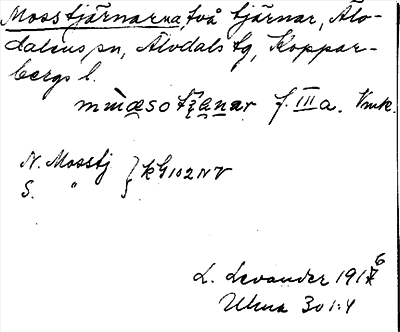 Mosstjärnarna, två tjärnar, Älv-
dalens sn, Älvdals tg, Koppar-
bergs l.
f. III a. Vmk.
N. Mosstj } KG 102 NV
S. " }
L. Levander 1916
Ulma 301:4